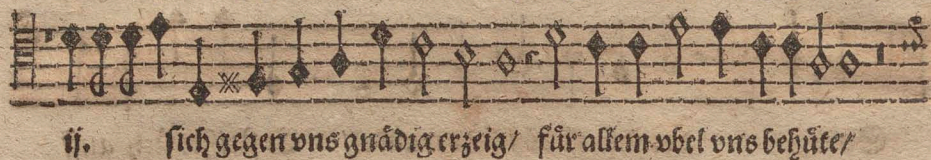 ij. ſich gegen vns gnädig erzeig/ für allem vbel vns behüte/